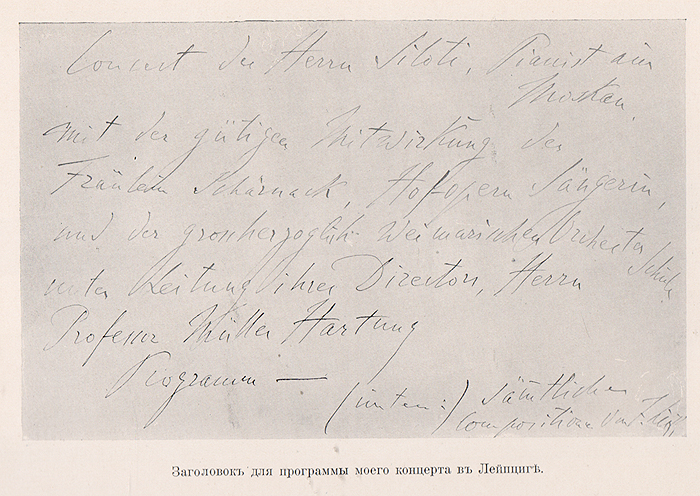 Concert des Herrn Siloti, Pianist aus
Moskau,
mit der gütigen Mitwirkung des
Fräulein Schärnack, Hofopern Sängerin,
und der grossherzoglich Weimarischen Orchester Schule
unter Leitung ihres Directors, Herrn
Professor Müller Hartung
Programm —
(unten:) Sämtliche
Compositionen von F. Liszt,
Заголовокъ для программы моего концерта въ Лейпцигѣ.